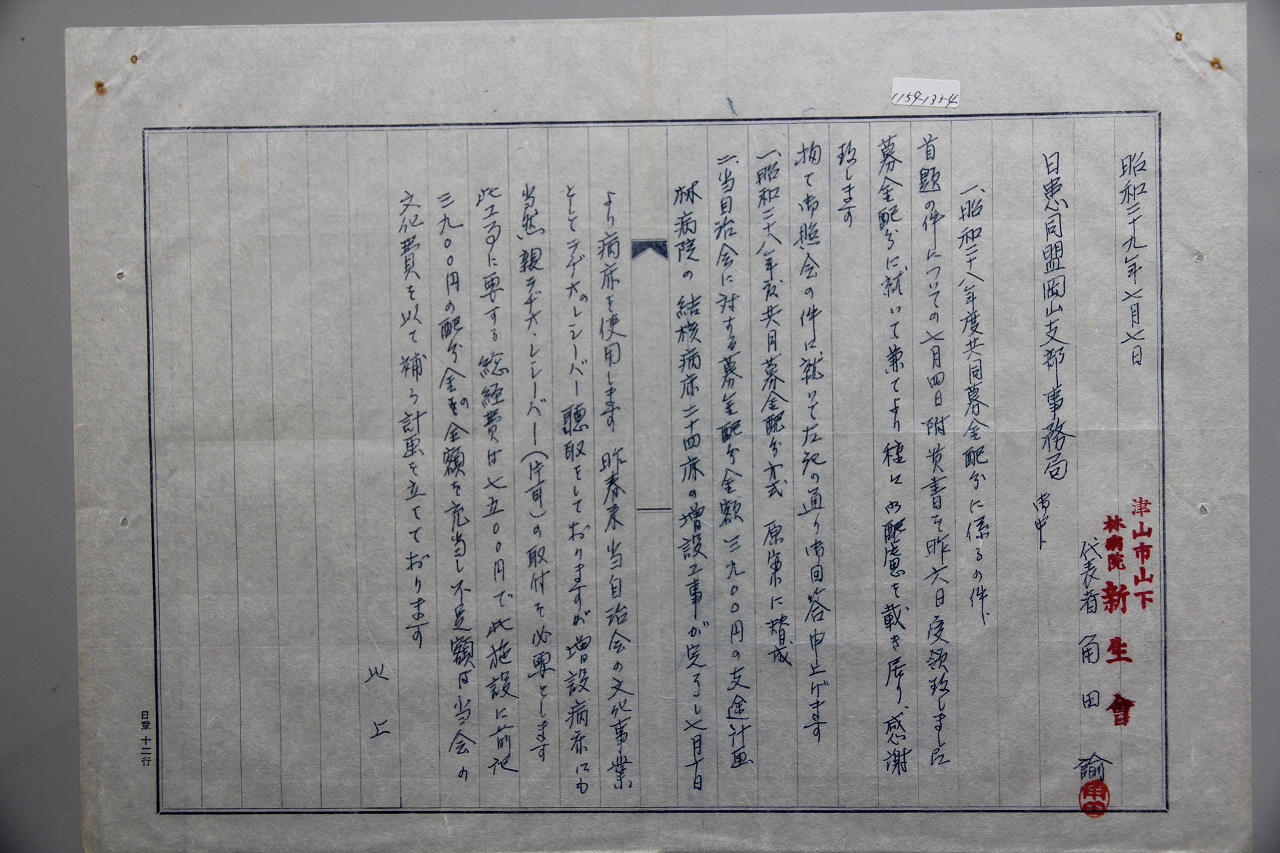 1159-133-4
昭和二十九年七月七日
津山市山下
林病院 新生會
代表者 角田 諭
角田
日患同盟岡山支部事務局 御中
一、昭和二十八年度共同募金配分に係るの件、
首題の件についての七月四日附貴書を昨六日受領致しました
募金配分に就いて兼てより種々御配慮を戴き居り、感謝
致します
拘て御照会の件に就いて左記の通り御回答申上げます
一、昭和二十八年度共同募金配分方式 原案に賛成
二、当自治会に対する募金配分金額三九〇〇円の支途計画
林病院の結核病床二十四床の増設工事が完了し七月十日
より病床を使用します 昨春来当自治会の文化事業
としてラヂオのレシーバー聴取をしておりますが増設病床にも
当然親ラヂオ・レシーバー(片耳)の取付を必要とします
此工事に要する総経費は七五〇〇円で此施設に前記
三九〇〇円の配分金の全額を充当し不足額は当会の
文化費を以て補う計画を立てております
以上
日章 十二行